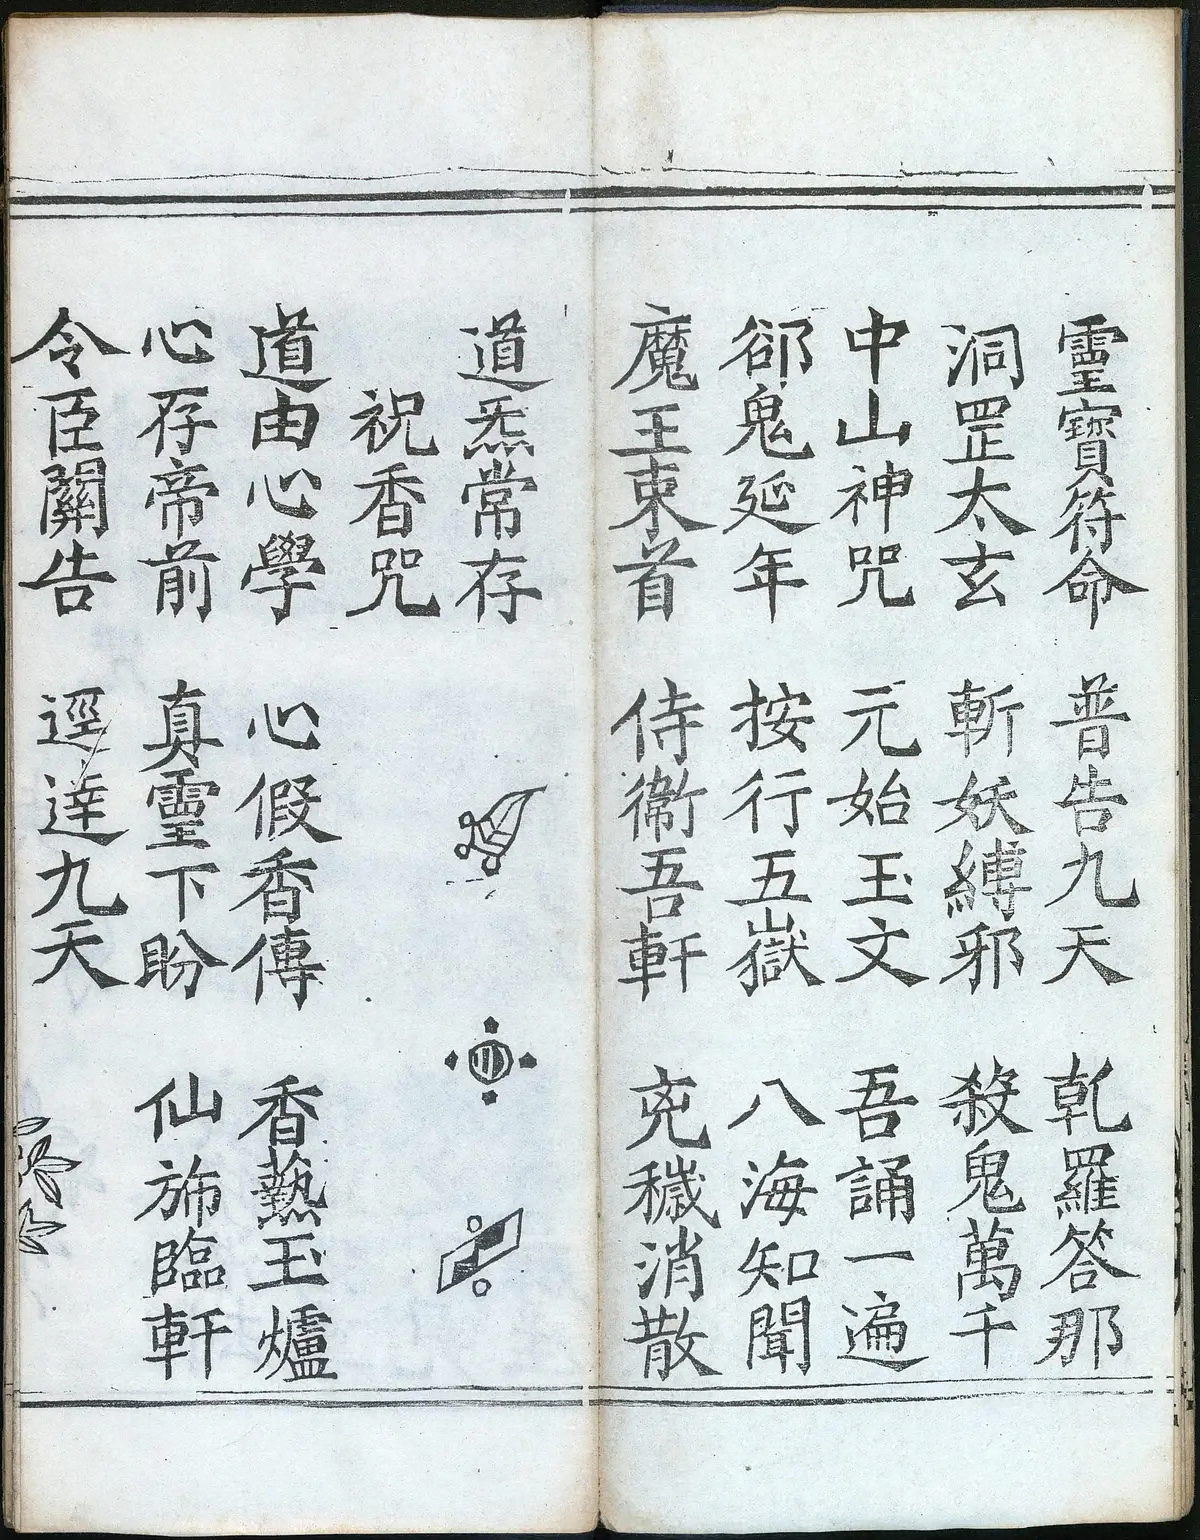 靈寶符命　普告九天　乹羅答那
洞罡太玄　斬妖縛邪　殺鬼萬千
中山神咒　元始玉文　吾誦一遍
郤鬼延年　按行五嶽　八海知聞
魔王束首　侍衞吾軒　兇穢消散
道炁常存
祝香咒
道由心學　心假香傳　香爇玉爐
心存帝前　真靈下盼　仙斾臨軒
令臣關告　逕達九天